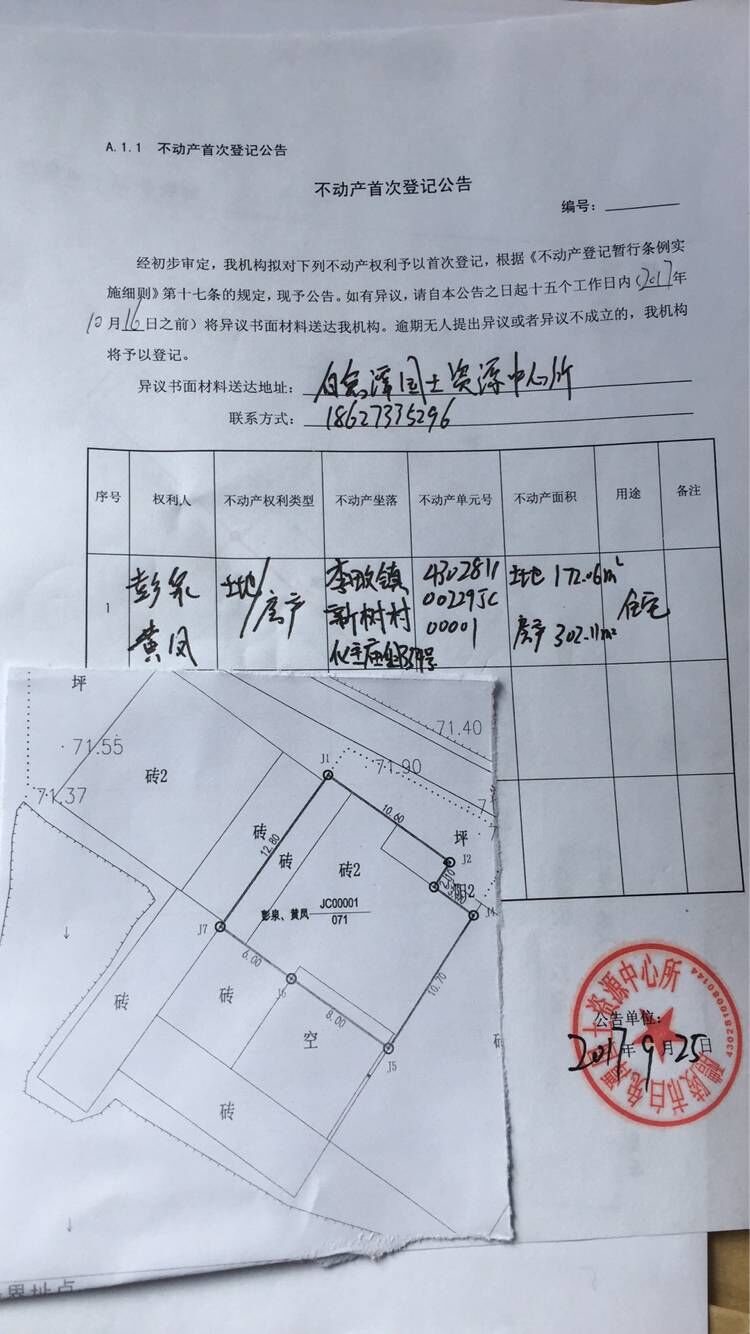 A.1.1 不动产首次登记公告
不动产首次登记公告
编号：
经初步审定，我机构拟对下列不动产权利予以首次登记，根据《不动产登记暂行条例实
施细则》第十七条的规定，现予公告。如有异议，请自本公告之日起十五个工作日内（2017年
10月16日之前）将异议书面材料送达我机构。逾期无人提出异议或者异议不成立的，我机构
将予以登记。
异议书面材料送达地址：白兔潭国土资源中心所
联系方式：18627335296
序号 权利人 不动产权利类型 不动产坐落 不动产单元号 不动产面积 用途 备注
1 彭泉 土地/ 李畋镇 4302811 土地 172.06m²
房产 新树村 00229JC 住宅
黄凤 00001 房产 302.11m²
坪
71.55
71.37
砖2
71.40
71.90
J1
10.60
砖
12.80
砖
砖2
坪
J2
阳2
J4
彭泉、黄凤 JC00001
071
J7
6.00
J6
8.00
10.70
J5
砖
砖
空
砖
公告单位：
2017年9月25日
醴陵市白兔潭国土资源中心所
4302810080144
界址点